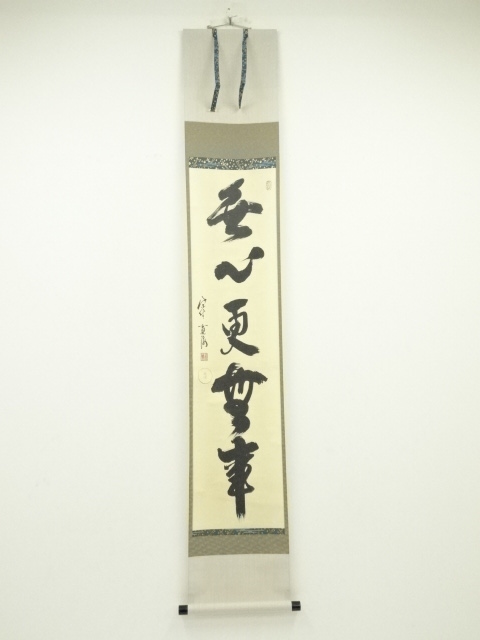 無心更無事